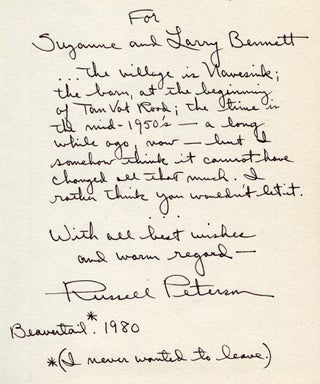 For
Suzanne and Larry Bennett
... the village is Navesink;
the barn, at the beginning
of Tan Vat Road; the time is
the mid-1950's — a long
while ago, now — but I
somehow think it cannot have
changed all that much. I
rather think you wouldn't let it.
With all best wishes
and warm regard —
Russell Peterson
Beavertail.* 1980
*(I never wanted to leave.)